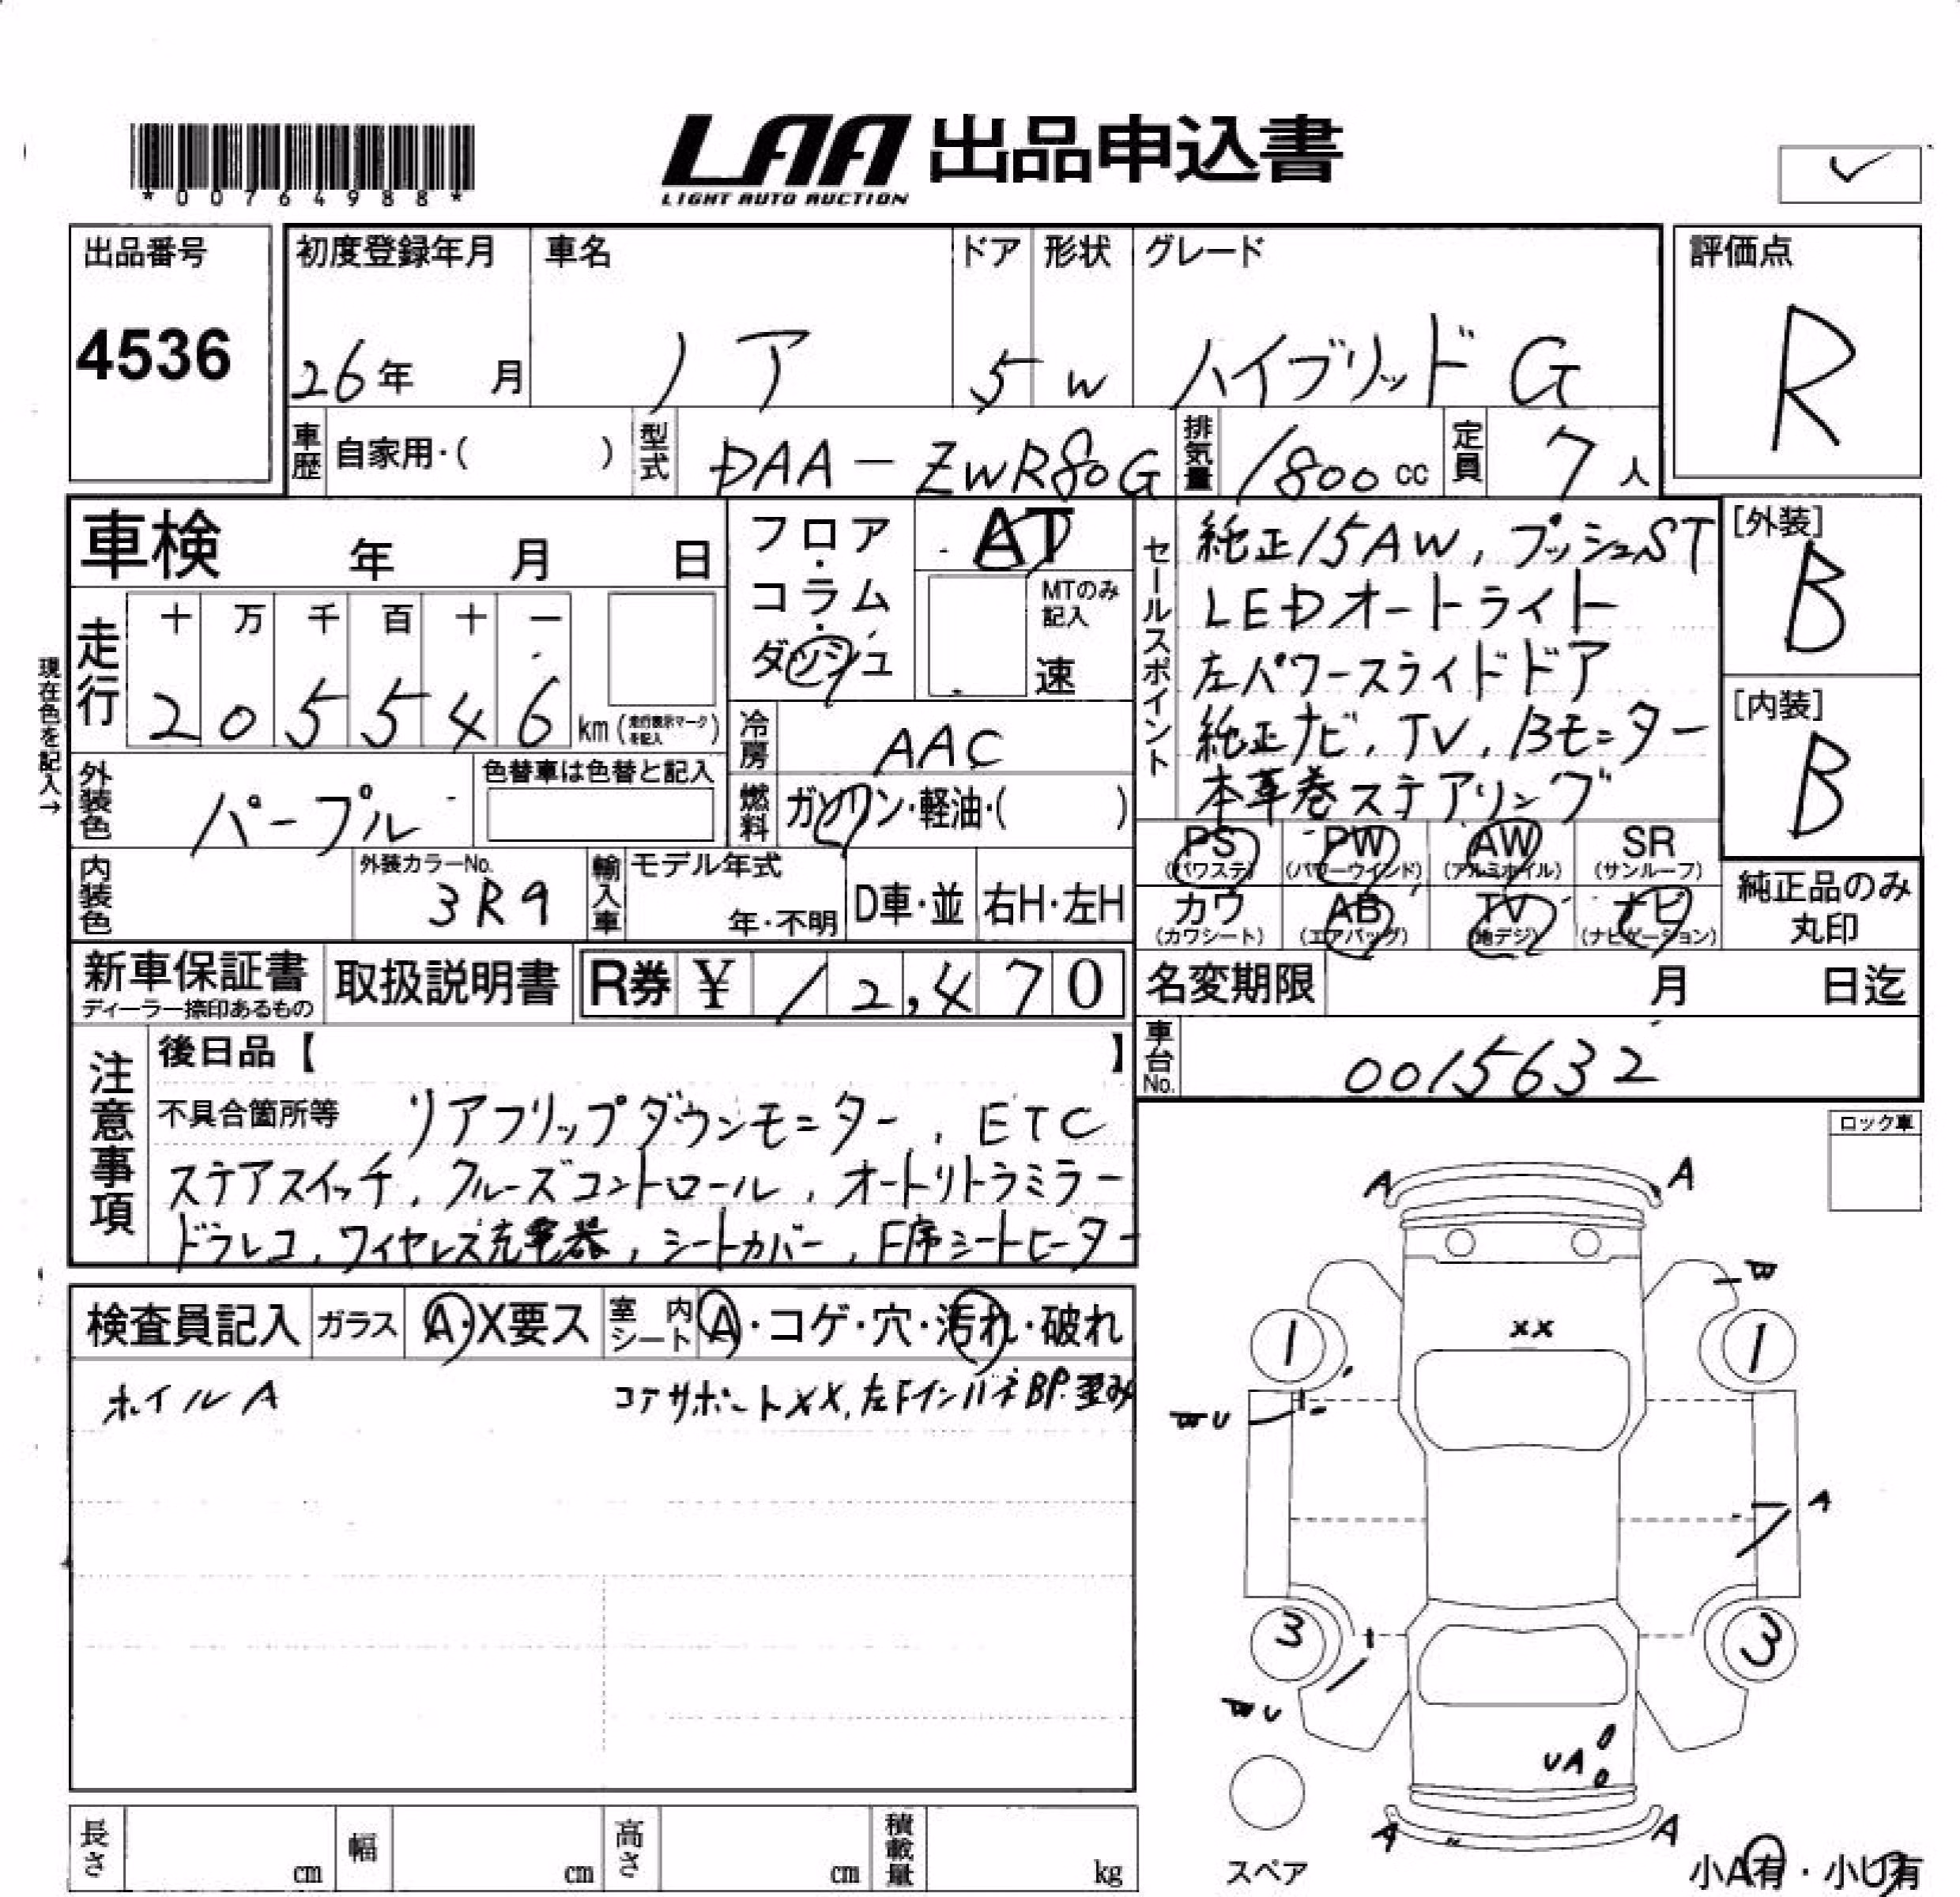 *00764988*
LAA 出品申込書
LIGHT AUTO AUCTION
出品番号
4536
初度登録年月 車名 ドア 形状 グレード
26年 月 ノア 5 W ハイブリッド G
評価点
R
車歴 自家用・( ) 型式 DAA-ZWR80G 排気量 1800 cc 定員 7人
車検 年 月 日
フロア・コラム・ダッシュ
AT
MTのみ記入
速
現在色を記入→
走行 十 万 千 百 十 一
205546 km (走行表示マークを記入)
冷房 AAC
外装色 パープル 色替車は色替と記入
燃料 ガソリン・軽油・( )
内装色 外装カラーNo. 3R9 輸入車 モデル年式 年・不明 D車・並 右H・左H
セールスポイント
純正15AW, プッシュST
LEDオートライト
左パワースライドドア
純正ナビ, TV, Bモニター
本革巻ステアリング
[外装]
B
[内装]
B
PS (パワステ) PW (パワーウインド) AW (アルミホイル) SR (サンルーフ)
カワ (カワシート) AB (エアバッグ) TV (地デジ) ナビ (ナビゲーション)
純正品のみ
丸印
新車保証書 ディーラー捺印あるもの 取扱説明書 R券 ¥ 12,470
名変期限 月 日迄
車台No. 0015632
注意事項
後日品【 】
不具合箇所等 リアフリップダウンモニター, ETC
ステアスイッチ, クルーズコントロール, オートリトラミラー
ドラレコ, ワイヤレス充電器, シートカバー, F席シートヒーター
検査員記入 ガラス A・X要ス 室内シート A・コゲ・穴・汚れ・破れ
ホイルA コアサポートXX, 左FインハネBP.歪み
ロック車
A A
W
XX
1 1
WU
A
3 3
WU
UA
A A
スペア
小A有・小U有
長さ cm 幅 cm 高さ cm 積載量 kg